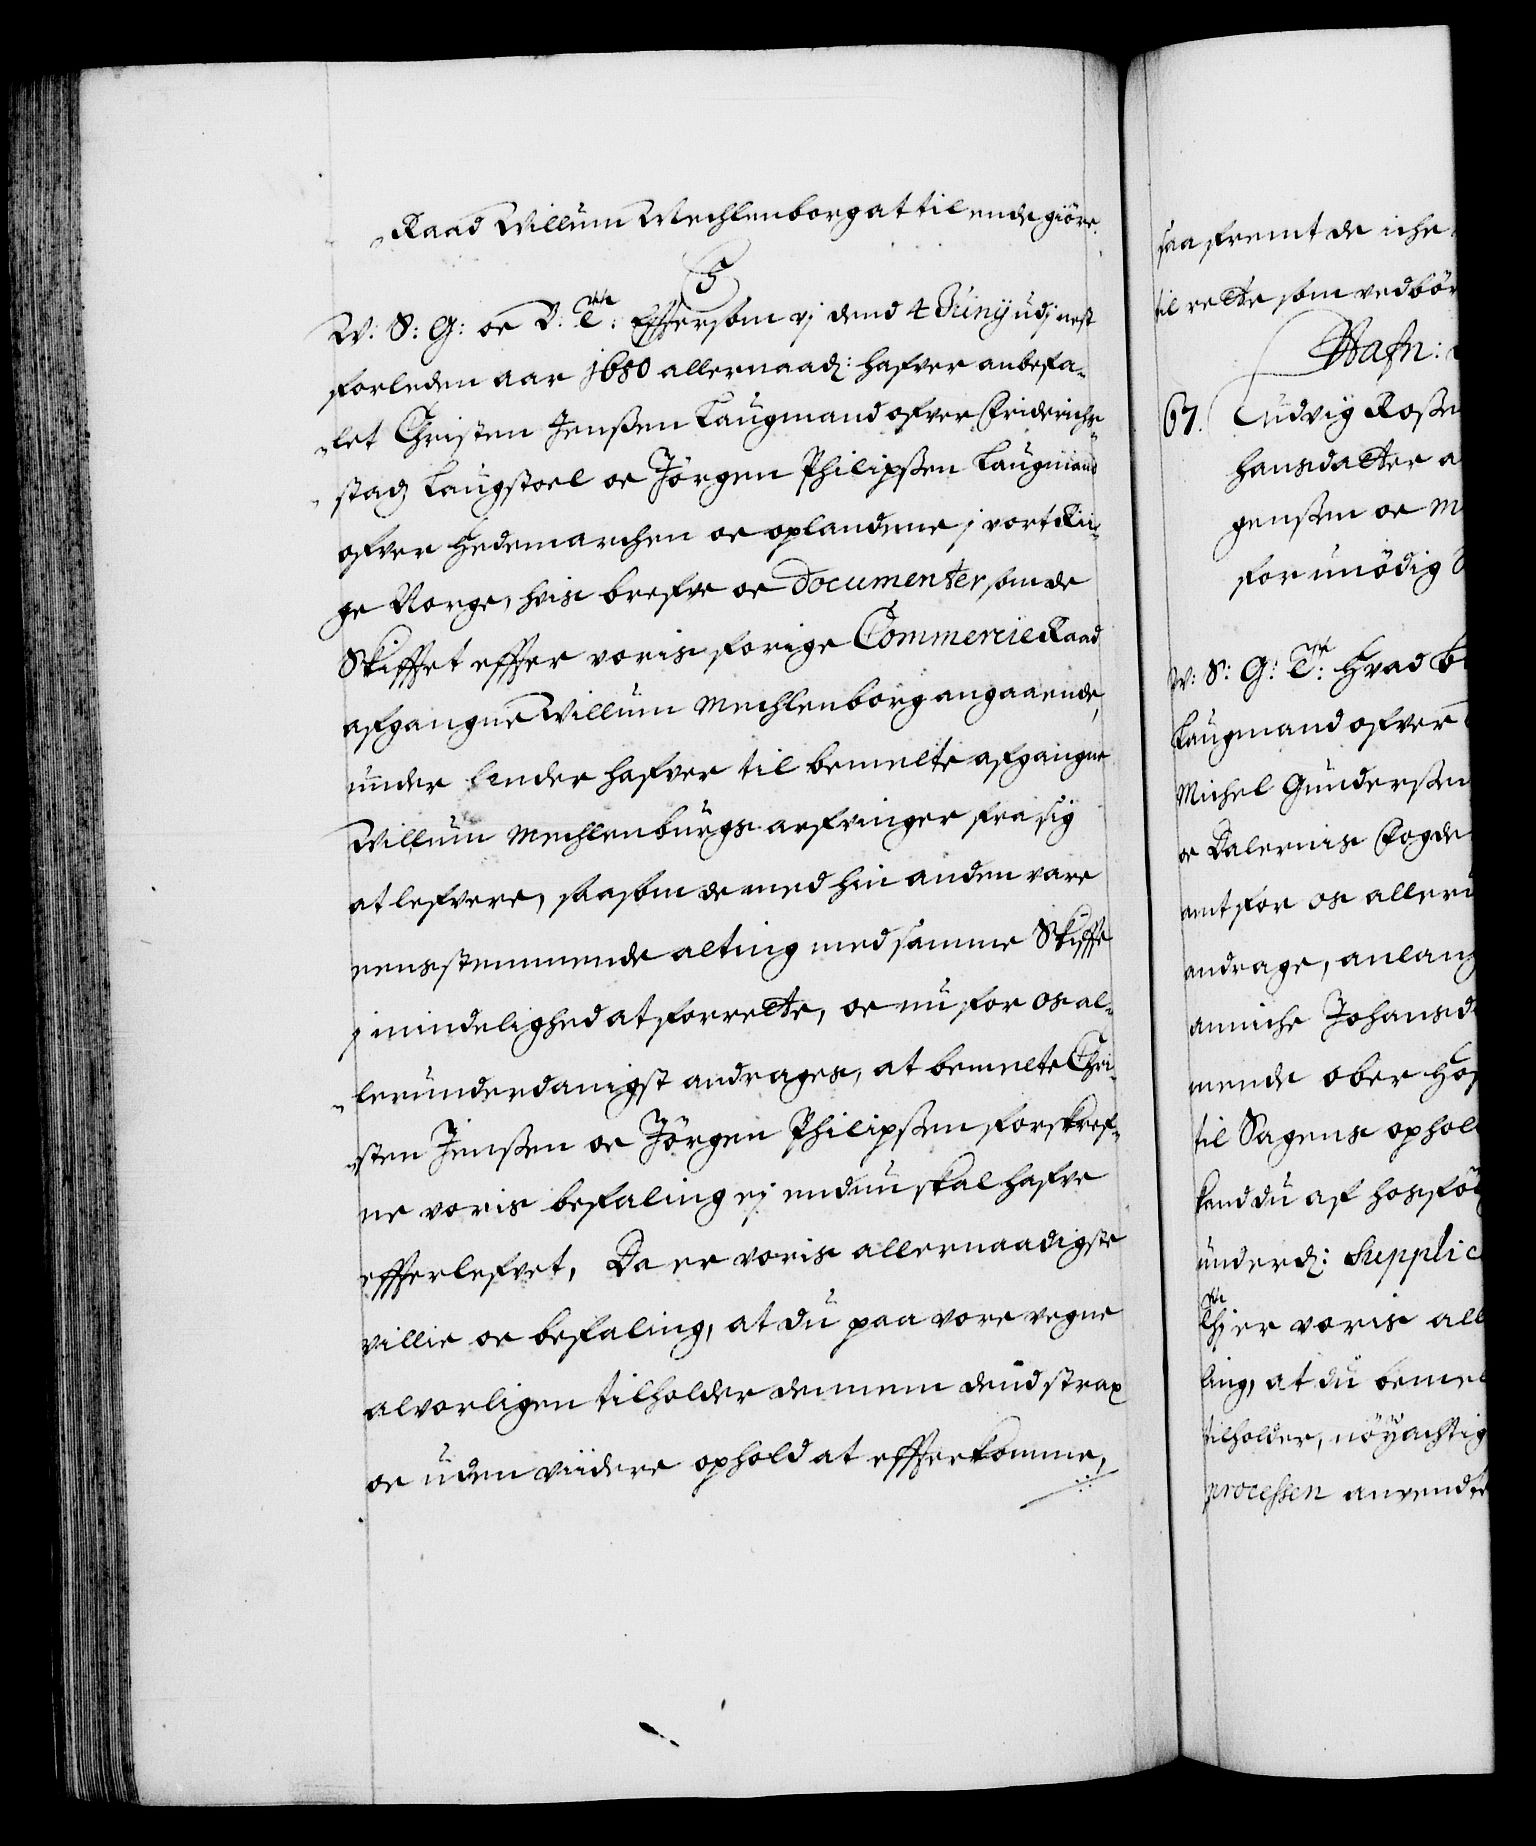 Raad Willum Mechlenborg at til ende giöre.
C5
W: S: G: oc V: T: Effersom vj dend 4 Junij udj nest
forleden aar 1680 allernaad: hafver anbefa-
let Christen Jenssen Laugmand ofver Friderichs-
stadz Laugstoel oc Jörgen Philipssen Laugmand
ofver Hedemarchen oc oplandene j vort Rii-
ge Norge, hvis brefve oc Documenter som de
Skifftet effter voris forige Commercie Raad
afgangne Willum Mechlenborg angaaende,
under hender hafver til bemelte afgangne
Willum Mechlenburgs arfvinger fra sig
at lefvere, saasom de med hin anden vare
eens stemmende alting med samme Skiffte
j mindelighed at forrette, oc nu for os al-
lerunderdanigst andrages, at bemelte Chri-
sten Jenssen oc Jörgen Philipssen forskref-
ne voris befaling ej endnu skal hafve
effterlefvet, Da er voris allernaadigste
villie oc befaling, at du paa vore vegne
alvorligen tilholder dennem dend strax
oc uden viidere ophold at effterkomme,
saa fremt de iche
til rette som vedbör
Hafn:
67. Ludvig Rosen
hansdatter a
genssen oc M
for unödig
W: S: G: T: Hvad b
Laugmand ofver
Michel Gunderssen
oc Dalernis Fogde
amt for os alleru
andrage, anlang
anniche Johansd
mende ober Hof
til Sagens ophol
kand du af hosföl
underd: Supplic
Thj er voris all
ling, at du bemel
tilholder, nöyachtig
processen anvendte